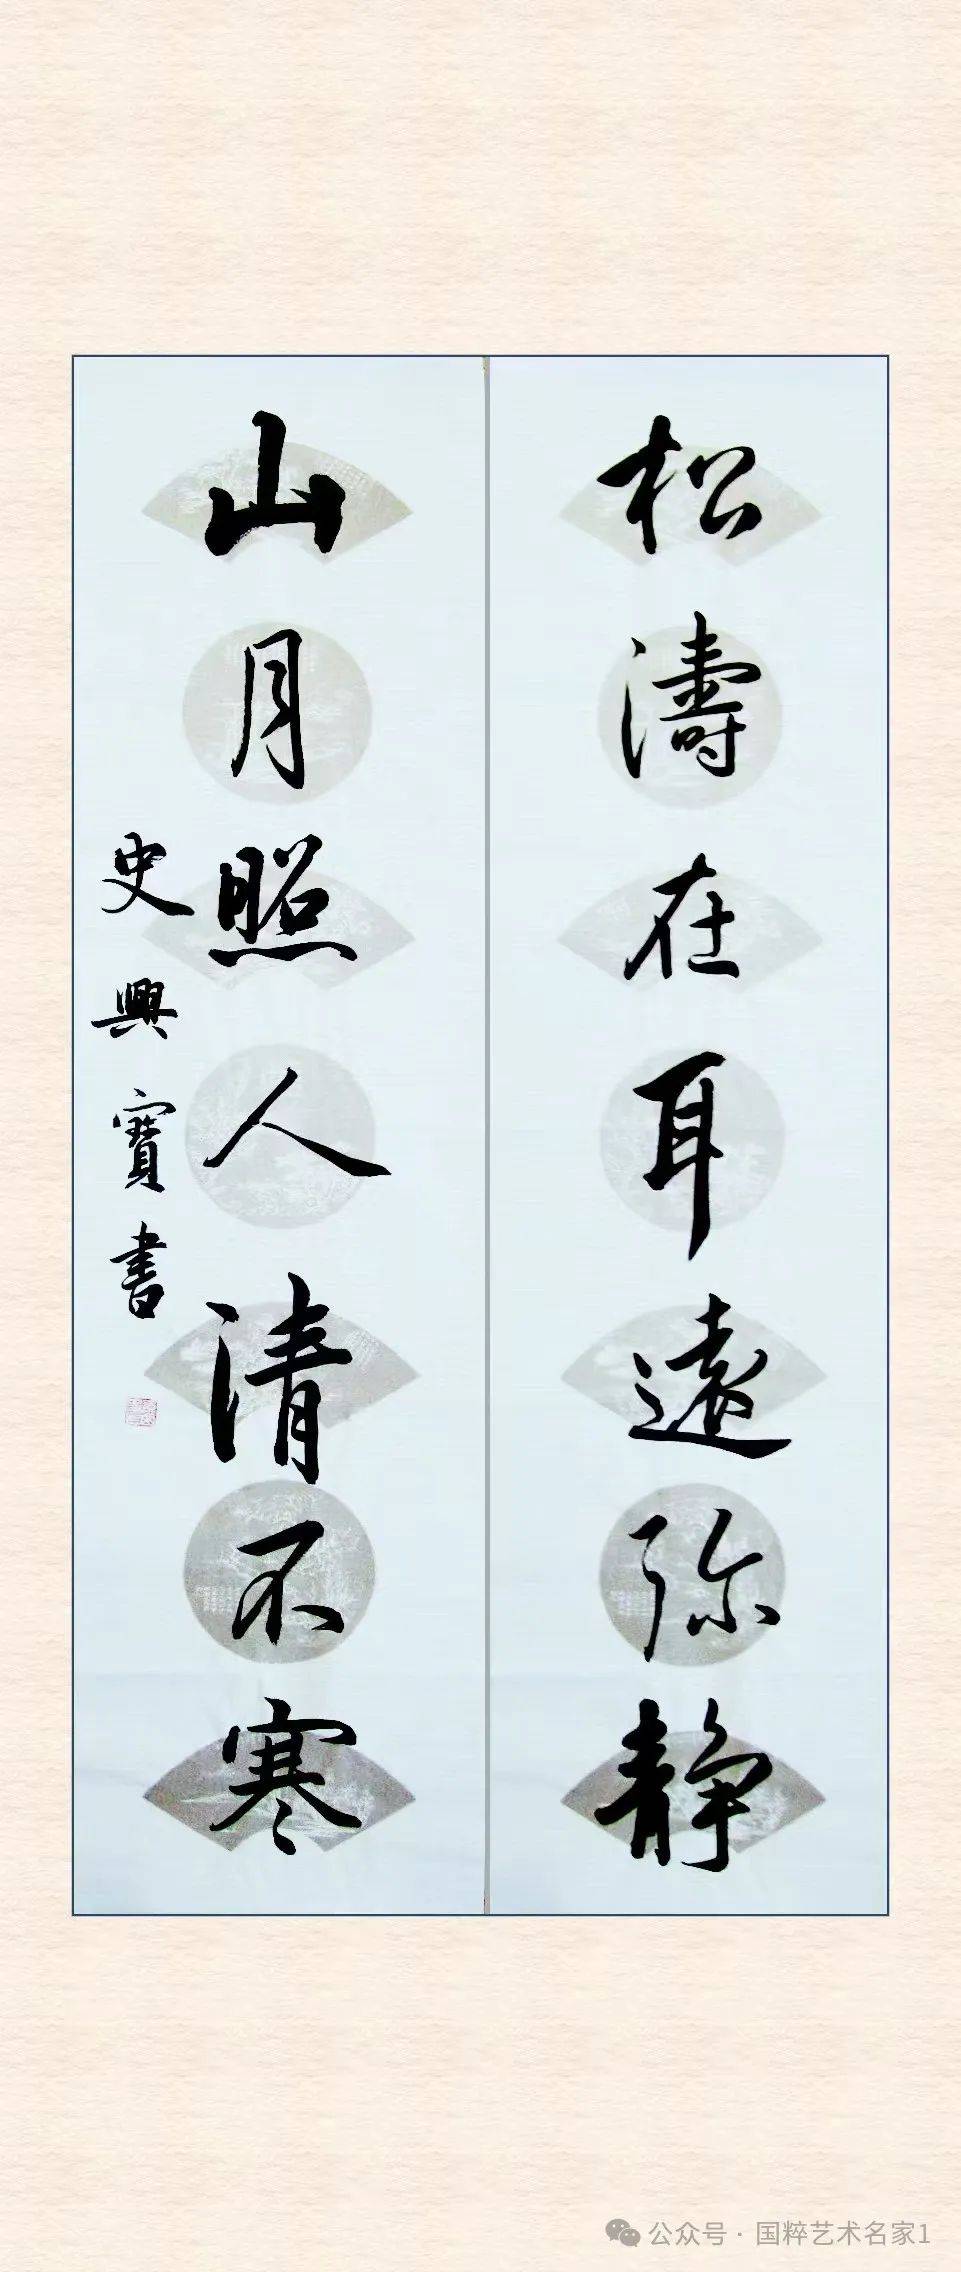 松濤在耳遠弥静
山月照人清不寒
史興寶書
公众号 · 国粹艺术名家1